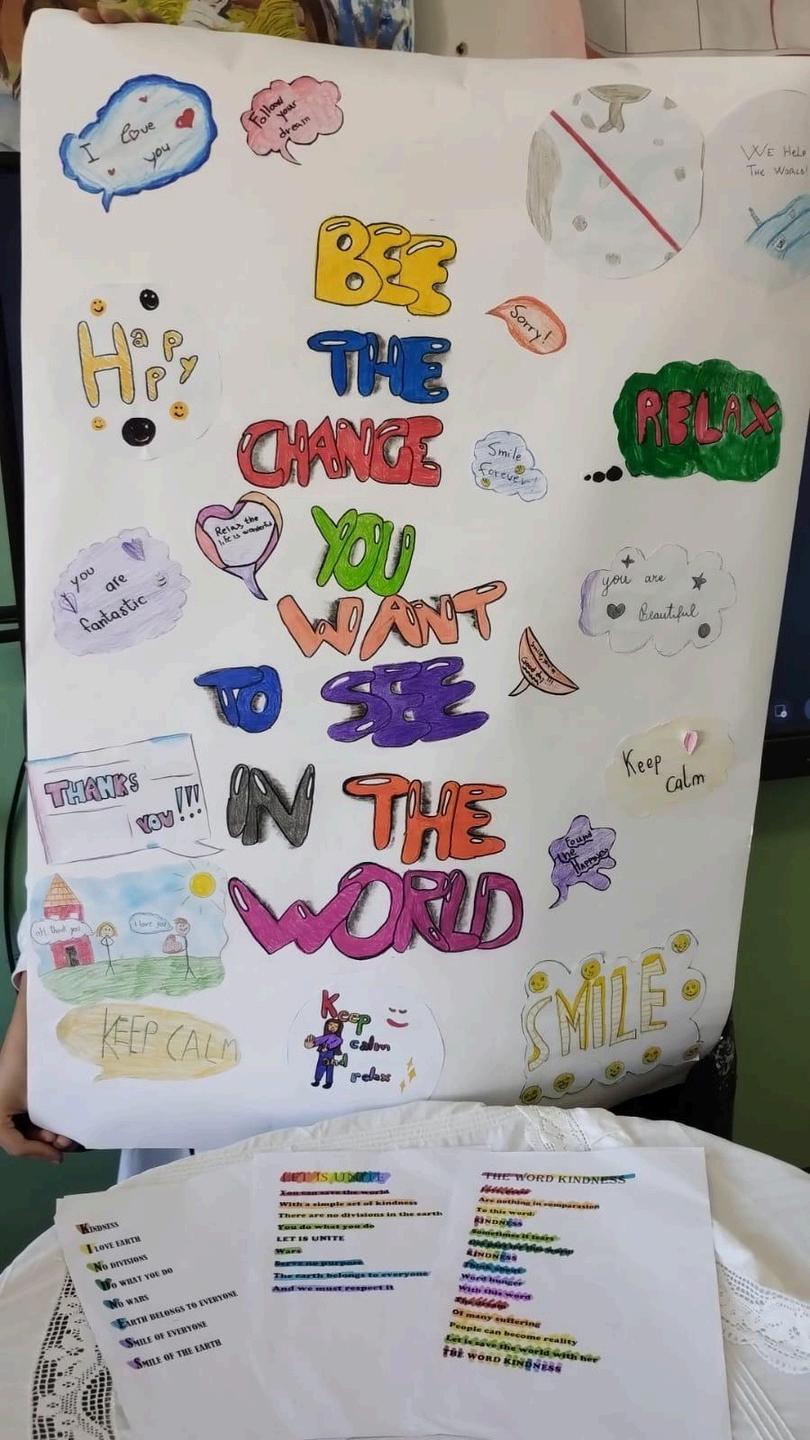 I love you
Follow
your
dream
WE HELP
THE WORLD!
BEE
THE
CHANGE
YOU
WANT
TO SEE
IN THE
WORLD
HAPPY
Sorry!
RELAX
Smile
forever
Relax, the
life is wonderful
you
are
fantastic
you are
Beautiful
THANKS
YOU!!!
Keep
calm
Found
the
Happiness
I love you
KEEP CALM
Keep
calm
and
relax
SMILE
KINDNESS
I LOVE EARTH
NO DIVISIONS
DO WHAT YOU DO
NO WARS
EARTH BELONGS TO EVERYONE
SMILE OF EVERYONE
SMILE OF THE EARTH
LET IS UNITE
You can save the world
With a simple act of kindness
There are no divisions in the earth
You do what you do
LET IS UNITE
Wars
Serve no purpose
The earth belongs to everyone
And we must respect it
THE WORD KINDNESS
Are nothing in comparasion
To this word:
KINDNESS
Sometimes it tears
KINDNESS
Word hunger
With this word
The dream
Of many suffering
People can become reality
Let is save the world with her
THE WORD KINDNESS